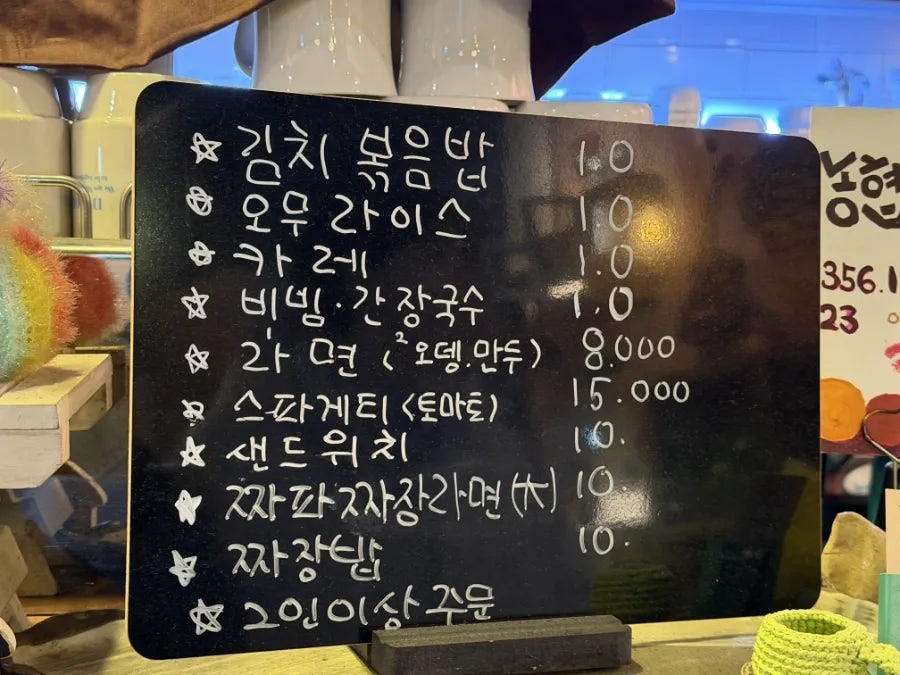 ☆ 김치 볶음밥 1.0
☆ 오무라이스 1.0
☆ 카레 1.0
☆ 비빔·간장국수 1.0
☆ 라면 (오뎅.만두) 8.000
☆ 스파게티 <토마토) 15.000
☆ 샌드위치 10.
☆ 짜파짜장라면(大) 10.
☆ 짜장밥 10.
☆ 2인이상 주문
356.1
23